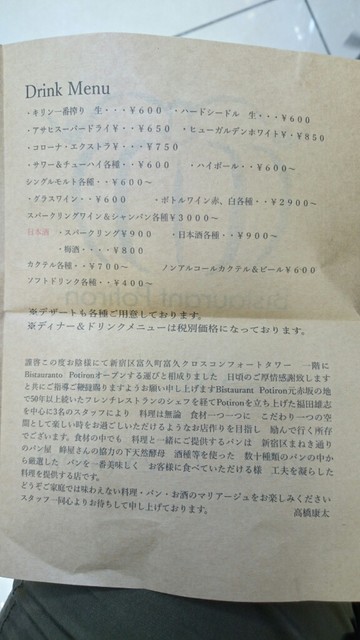 Drink Menu
・キリン一番搾り 生・・・¥600 ・ハードシードル 生・・・¥600
・アサヒスーパードライ¥・・¥650 ・ヒューガルデンホワイト¥・・¥850
・コローナ・エクストラ¥・・・¥750
・サワー＆チューハイ各種・・¥600 ・ハイボール・・¥600～
シングルモルト各種・・¥600～
・グラスワイン・・¥600 ・ボトルワイン赤、白各種・・¥2900～
スパークリングワイン＆シャンパン各種¥3000～
日本酒 ・スパークリング¥900 ・日本酒各種・・¥900～
・梅酒・・・・¥800
カクテル各種・・¥700～ ノンアルコールカクテル＆ビール¥600
ソフトドリンク各種・・¥400～
※デザートも各種ご用意しております。
※ディナー＆ドリンクメニューは税別価格になっております。
謹啓この度お陰様にて新宿区富久町富久クロスコンフォートタワー 一階に
Bistauranto Potironオープンする運びと相成りました 日頃のご厚情感謝致します
と共にご指導ご鞭撻賜りますようお願い申し上げますBistaurant Potiron元赤坂の地
で50年以上続いたフレンチレストランのシェフを経てPotironを立ち上げた福田雄志
を中心に3名のスタッフにより 料理は無論 食材一つ一つに こだわり一つの空
間として楽しい時をお過ごしいただけるようなお店作りを目指し 励んで行く所存
でございます。食材の中でも 料理と一緒にご提供するパンは 新宿区まねき通り
のパン屋 峰屋さんの協力の下天然酵母 酒種等を使った 数十種類のパンの中か
ら厳選した パンを一番美味しく お客様に食べていただける様 工夫を凝らした
料理を提供する店です。
どうぞご家庭では味わえない料理・パン・お酒のマリアージュをお楽しみください
スタッフ一同心よりお待ちして申し上げております。 高橋康太